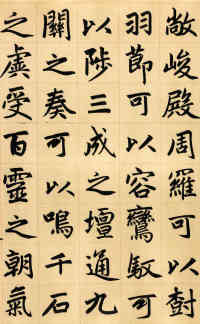 敞峻殿周羅可以樹
羽節可以容鸞馭可
以陟三成之壇通九
關之奏可以鳴千石
之虡受百靈之朝氣